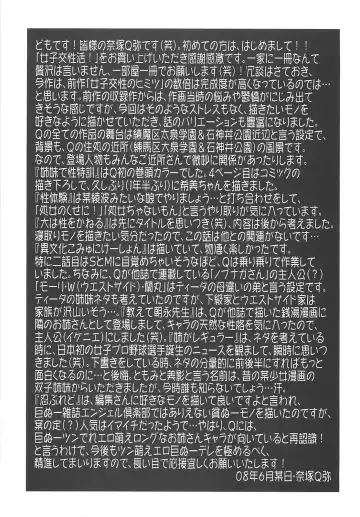 どもです!皆様の奈塚Q弥です(笑)。初めての方は、はじめまして!!
『女子交性活!』をお買い上げいただき感謝感激です。一家に一冊なんて
贅沢は言いません、一部屋一冊でお願いします(笑)!冗談はさておき、
今作は、前作『女子交性のヒミツ』の数倍は完成度が高くなっているのでは…
と思います。前作の収録作からは、作画当時の悩みや鬱憤がにじみ出て
きそうですが、今回はそのようなストレスもなく、描きたいモノを
好きなように描かせていただき、話のバリエーションも豊富になりました。
Qの全ての作品の舞台は練魔区大泉学園&石神井公園近辺と言う設定で、
背景も、Qの住処の近所(練馬区大泉学園&石神井公園)の風景です。
なので、登場人物もみんなご近所さんで微妙に関係があったりします。
『姉妹で性特訓』はQ初の巻頭カラーでした。4ページ目はコミックの
描き下ろしで、久しぶり(1年半ぶり)に希美ちゃんを描きました。
『性体験』は某綾波みたいな娘でやりましょう…と打ち合わせをして、
「処女のくせに!」「処女ちゃないもん」と言うやり取りが気に入ってます。
『大は性をかねる』は先にタイトルを思いつき(笑)、内容は後から考えました。
寝取りモノを描きたい気分だったので、この話は他との関連がないです…
『異文化こみゅにけーしょん』は、描いていて、物凄く楽しかったです。
特に二話目はSとMに目覚めちゃいそうなほど、Qは乗り乗りで作業して
いました。ちなみに、Qが他誌で連載している「ノブナガさん」の主人公(?)
「モーリ・W(ウエストサイド)・蘭丸」はティータの母違いの弟と言う設定です。
ティータの姉妹ネタも考えていたのですが、下級家とウエストサイド家は
家族が沢山いそう…。『教えて朝永先生』は、Qが他誌で描いた銭湯漫画に
隣のお姉さんとして登場しまして、キャラの天然な性格を気に入ったので、
主人公(イケニエ)にしました(笑)。『姉がレギュラー』は、ネタを考えている
時に、日本初の女子プロ野球選手誕生のニュースを観まして、瞬時に思いつ
きました(笑)。下書きをしている時、ネタの分量的に前後半にすればもっと
面白くなるのに…と後悔。ともみと美影と言う名前は、昔の某少女漫画の
双子姉妹からいただきましたが、今時誰も知らないでしょう…汗。
『忍ぶれど』は、編集さんに好きなモノを描いて良いですよと言われ、
巨ぬー雑誌エンジェル倶楽部ではありえない貧ぬーモノを描いたのですが、
案の定(?)人気はイマイチだったようで…やはり、Qには、
巨ぬーツンでれエロ萌えロングなお姉さんキャラが向いていると再認識!
と言うわけで、今後もツン萌えエロ巨ぬーデレを極めるべく、
精進してまいりますので、長い目で応援宜しくお願いいたします!
08年6月某日・奈塚Q弥